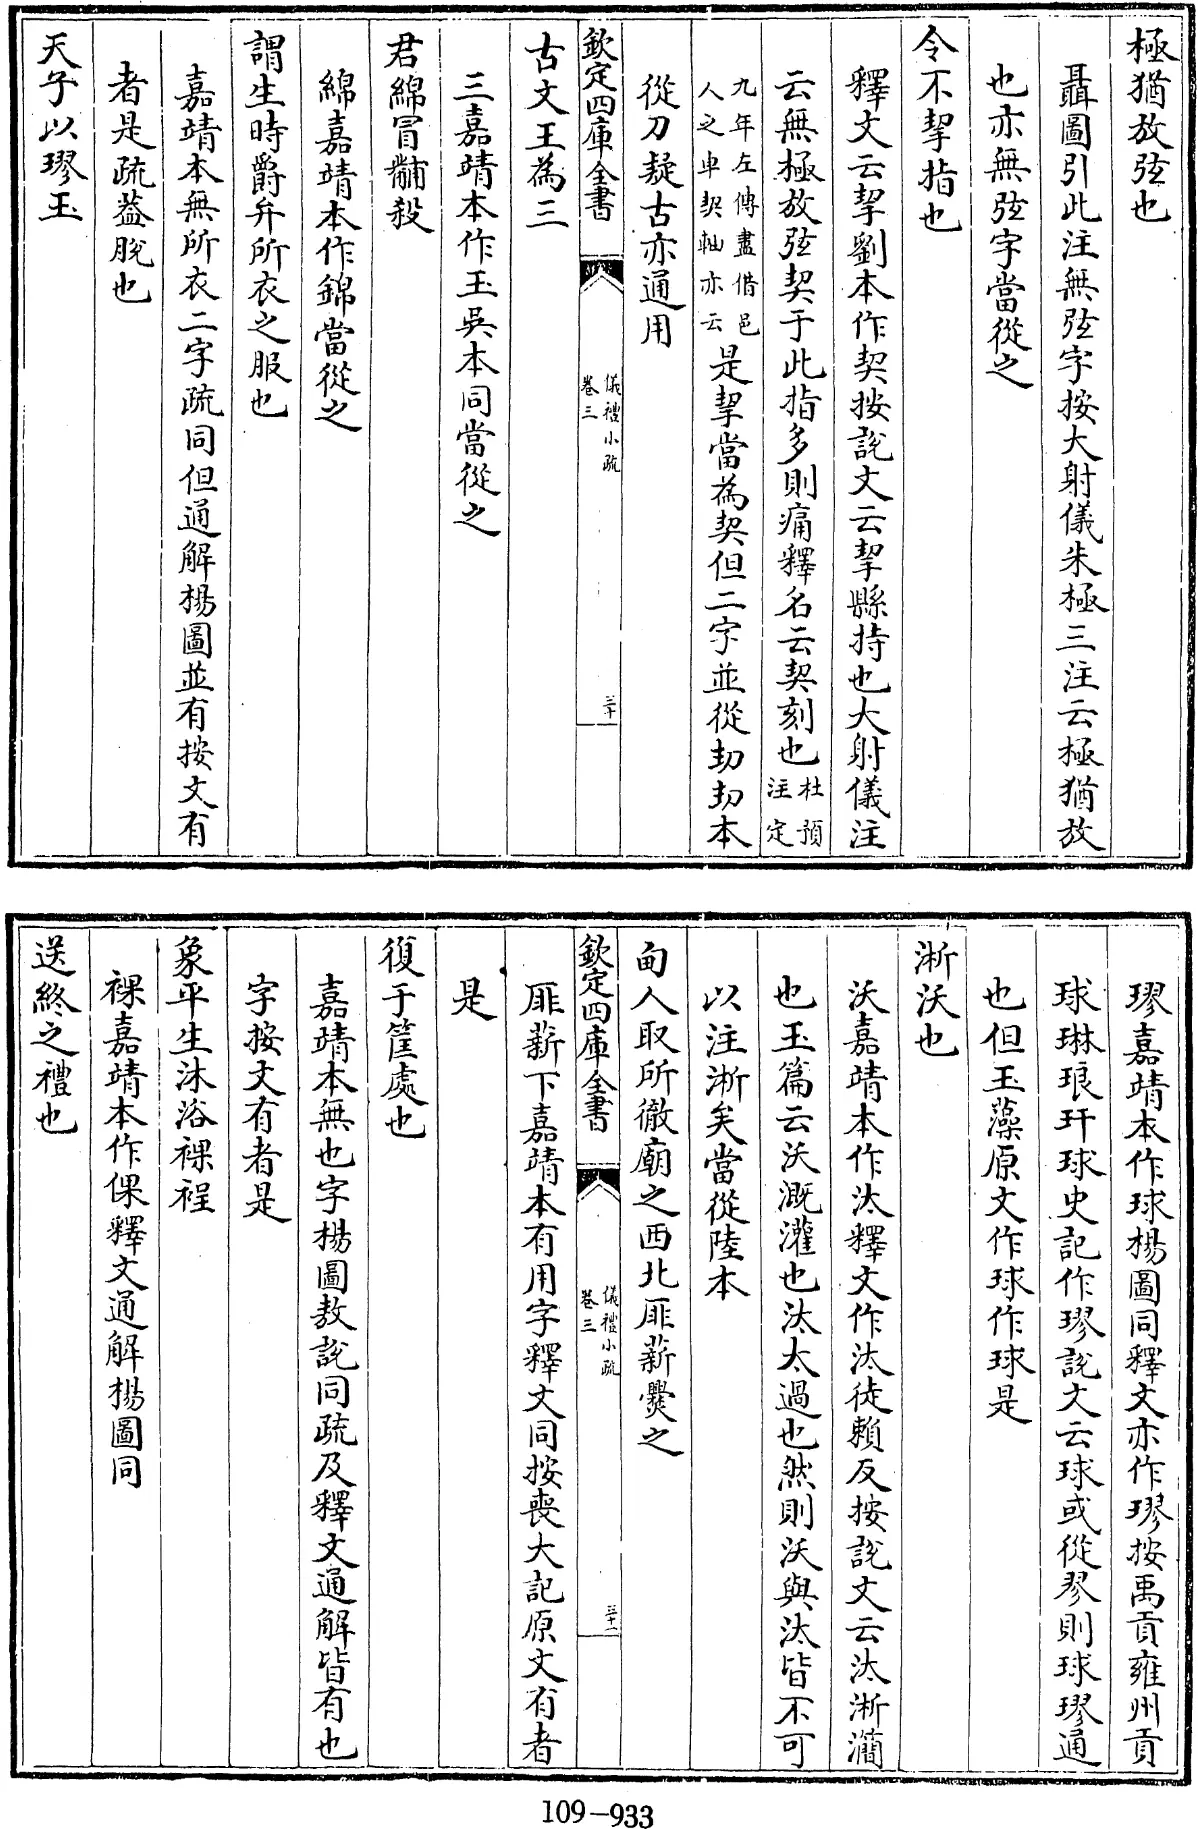 極猶放弦也
聶圖引此注無弦字按大射儀朱極三注云極猶放
也亦無弦字當從之
令不挈指也
釋文云挈劉本作契按說文云挈縣持也大射儀注
云無極放弦契于此指多則痛釋名云契刻也杜預注定
九年左傳盡借邑人之車契軸亦云是挈當為契但二字並從㓞㓞本
從刀疑古亦通用
欽定四庫全書
儀禮小疏
卷三
三十
古文王為三
三嘉靖本作玉吳本同當從之
君綿冒黼殺
綿嘉靖本作錦當從之
謂生時爵弁所衣之服也
嘉靖本無所衣二字疏同但通解楊圖並有按文有
者是疏葢脫也
天子以璆玉
璆嘉靖本作球楊圖同釋文亦作璆按禹貢雍州貢
球琳琅玕球史記作璆說文云球或從翏則球璆通
也但玉藻原文作球作球是
淅沃也
沃嘉靖本作汰釋文作汰徒賴反按說文云汰淅灡
也玉篇云沃溉灌也汰太過也然則沃與汰皆不可
以注淅矣當從陸本
甸人取所徹廟之西北厞薪爨之
厞薪下嘉靖本有用字釋文同按喪大記原文有者
是
欽定四庫全書
儀禮小疏
卷三
三十一
復于筐處也
嘉靖本無也字楊圖敖說同疏及釋文通解皆有也
字按文有者是
象平生沐浴裸裎
裸嘉靖本作倮釋文通解楊圖同
送終之禮也
109-933